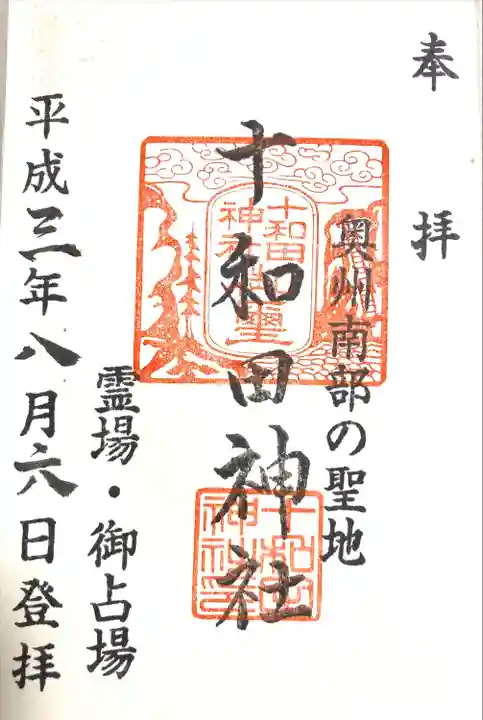 奉拝
奥州南部の聖地
十和田神社
霊場・御占場
平成三年八月六日登拝
十和田
神社璽
十和田
神社印